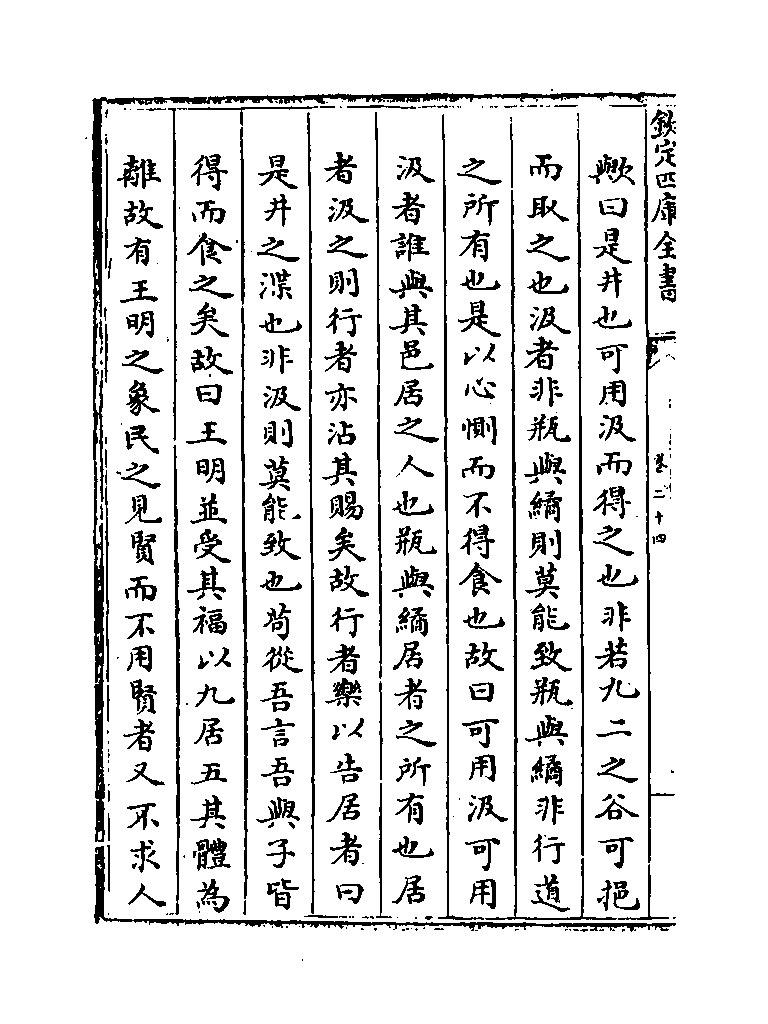 欽定四庫全書
卷二十四
歟曰是井也可用汲而得之也非若九二之谷可挹
而取之也汲者非瓶與繘則莫能致瓶與繘非行道
之所有也是以心惻而不得食也故曰可用汲可用
汲者誰與其邑居之人也瓶與繘居者之所有也居
者汲之則行者亦沾其賜矣故行者樂以告居者曰
是井之渫也非汲則莫能致也茍從吾言吾與子皆
得而食之矣故曰王明並受其福以九居五其體為
離故有王明之象民之見賢而不用賢者又不求人